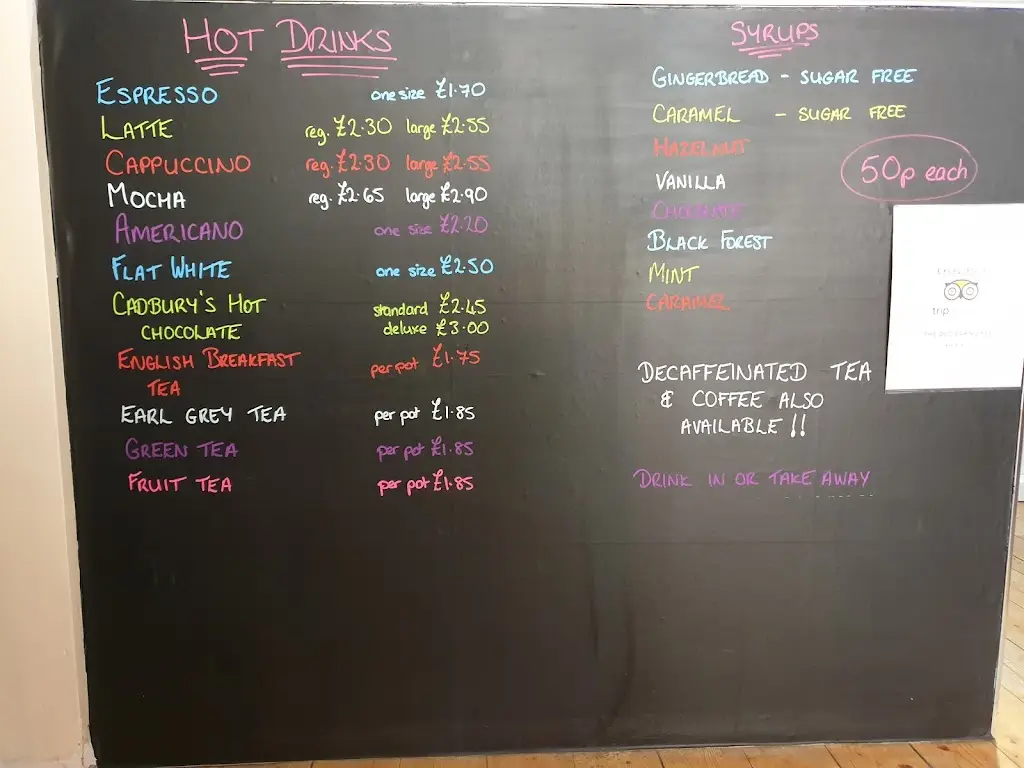 HOT DRINKS
ESPRESSO one size £1.70
LATTE reg. £2.30 large £2.55
CAPPUCCINO reg. £2.30 large £2.55
MOCHA reg. £2.65 large £2.90
AMERICANO one size £2.20
FLAT WHITE one size £2.50
CADBURY'S HOT standard £2.45
CHOCOLATE deluxe £3.00
ENGLISH BREAKFAST per pot £1.75
TEA
EARL GREY TEA per pot £1.85
GREEN TEA per pot £1.85
FRUIT TEA per pot £1.85
SYRUPS
GINGERBREAD - SUGAR FREE
CARAMEL - SUGAR FREE
HAZELNUT
50p each
VANILLA
CHOCOLATE
BLACK FOREST
MINT
CARAMEL
DECAFFEINATED TEA
& COFFEE ALSO
AVAILABLE!!
DRINK IN OR TAKE AWAY
trip